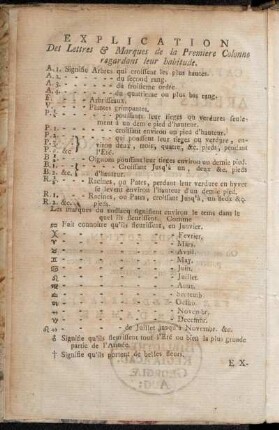 EXPLICATION
Des Lettres & Marques de la Premiere Colonne
regardant leur habitude.
A. 1. Signifie Arbres qui croissent les plus hautes.
A. 2. - - - du second rang.
A. 3. - - - du troisieme ordre.
A. 4. - - - du quatrieme ou plus bas rang.
- - Arbrisseaux.
V. - - Plantes grimpantes.
P. - - poussant leur tieges ou verdures seule-
ment à un demie pied d'hauteur.
P. 1. - - croissant environ un pied d'hauteur.
P. 2. - - qui poussent leur tieges ou verdure, en-
P. 3. &c. viron deux, trois, quatre, &c. pieds, pendant
l'Eté.
B. - - Oignons poussant leur tieges environ un demie pied.
B. 1. - - Croissant jusq'à un, deux &c. pieds
B. 2. &c. d'hauteur.
R. - - Racines, ou Pates, perdant leur verdure en hyver
se levent environ l'hauteur d'un demie pied.
R. 1. - - Racines, ou Pates, croissant jusq'à un, deux &c.
R. 2. &c. pieds.
Les marques du zodiaque signifient environ le tems dans le
quel ils fleurissent. Comme
♒ Fait connoitre qu'ils fleurissent, en Janvier.
♓ - - - Fevrier.
♈ - - - Mars.
♉ - - - Avril
♊ - - - May.
♋ - - - Juin.
♌ - - - Juillet.
♍ - - - Aout.
♎ - - - Septemb.
♏ - - - Octob.
♐ - - - Novembr.
♑ - - - Decembr.
- - - de Juillet jusqu'à Novembr. &c.
Signifie qu'ils fleurissent tout l'été ou bien la plus grande
partie de l'Année.
† Signifie qu'ils portent de belles fleurs.
EX-